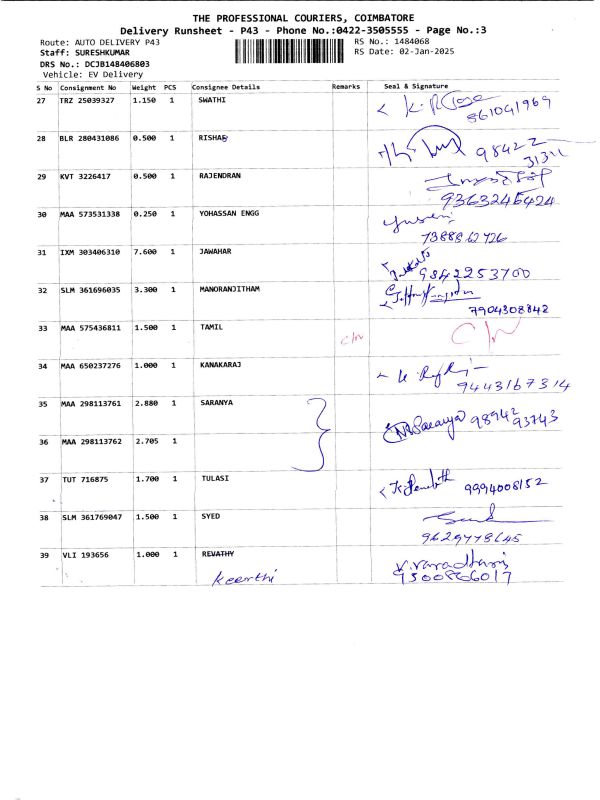 THE PROFESSIONAL COURIERS, COIMBATORE
Delivery Runsheet - P43 - Phone No.:0422-3505555 - Page No.:3
Route: AUTO DELIVERY P43 RS No.: 1484068
Staff: SURESHKUMAR RS Date: 02-Jan-2025
DRS No.: DCJB148406803
Vehicle: EV Delivery
S No Consignment No Weight PCS Consignee Details Remarks Seal & Signature
27 TRZ 25039327 1.150 1 SWATHI
861041969
28 BLR 280431086 0.500 1 RISHAB
98422
31311
29 KVT 3226417 0.500 1 RAJENDRAN
9363245424
30 MAA 573531338 0.250 1 YOHASSAN ENGG
7388862726
31 IXM 303406310 7.600 1 JAWAHAR
9842253700
32 SLM 361696035 3.300 1 MANORANJITHAM
7904308842
33 MAA 575436811 1.500 1 TAMIL C/N C/N
34 MAA 650237276 1.000 1 KANAKARAJ
9443167314
35 MAA 298113761 2.880 1 SARANYA
Saranya 98942
93743
36 MAA 298113762 2.705 1
37 TUT 716875 1.700 1 TULASI
9994008152
38 SLM 361769047 1.500 1 SYED
9629778645
39 VLI 193656 1.000 1 REVATHY
Keerthi
9500866017